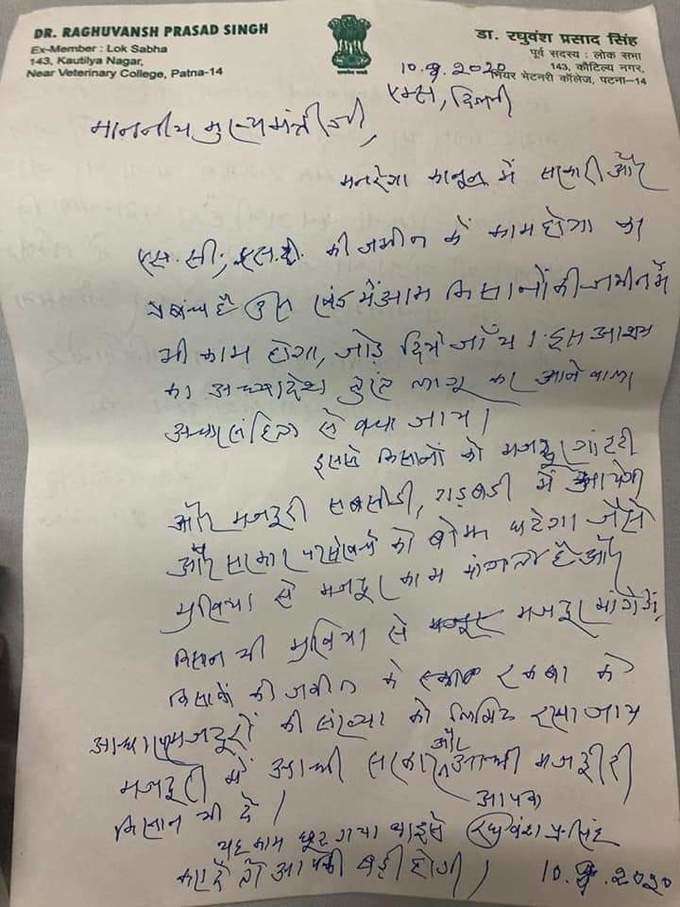 DR. RAGHUVANSH PRASAD SINGH
Ex-Member : Lok Sabha
143, Kautilya Nagar,
Near Veterinary College, Patna-14
डा. रघुवंश प्रसाद सिंह
पूर्व सदस्य : लोक सभा
143, कौटिल्य नगर,
नियर भेटनरी कॉलेज, पटना-14
10.9.2020
एम्स, दिल्ली
माननीय मुख्यमंत्री जी,
मनरेगा कानून में सरकारी और
एस.सी, एस.टी. की जमीन में काम होगा का
प्रबंध है उस खंड में आम किसानों की जमीन में
भी काम होगा, जोड़ दिया जाँय। इस आशय
का अध्यादेश तुरंत लागू कर आने वाला
आचार संहिता से बचा जाय।
इससे किसानों को मजदूर गारंटी
और मजदूरी सबसीडी, गड़बड़ी में
और सरकार पर को बोझ घटेगा जैसे
मुखिया से मजदूर काम मांगते हैं और
किसान भी मुखिया से मजदूर मांगेगें,
किसानों की जमीन के रकबा के
आधार पर मजदूरों की संख्या को लिमिट रखा जाय
मजदूरी में आधी सरकार और आधी मजदूरी
किसान भी दें।
आपका
यह काम छूट गया था इसे रघुवंश प्र सिंह
कर दें तो आपकी बड़ी होगी। 10.9.2020